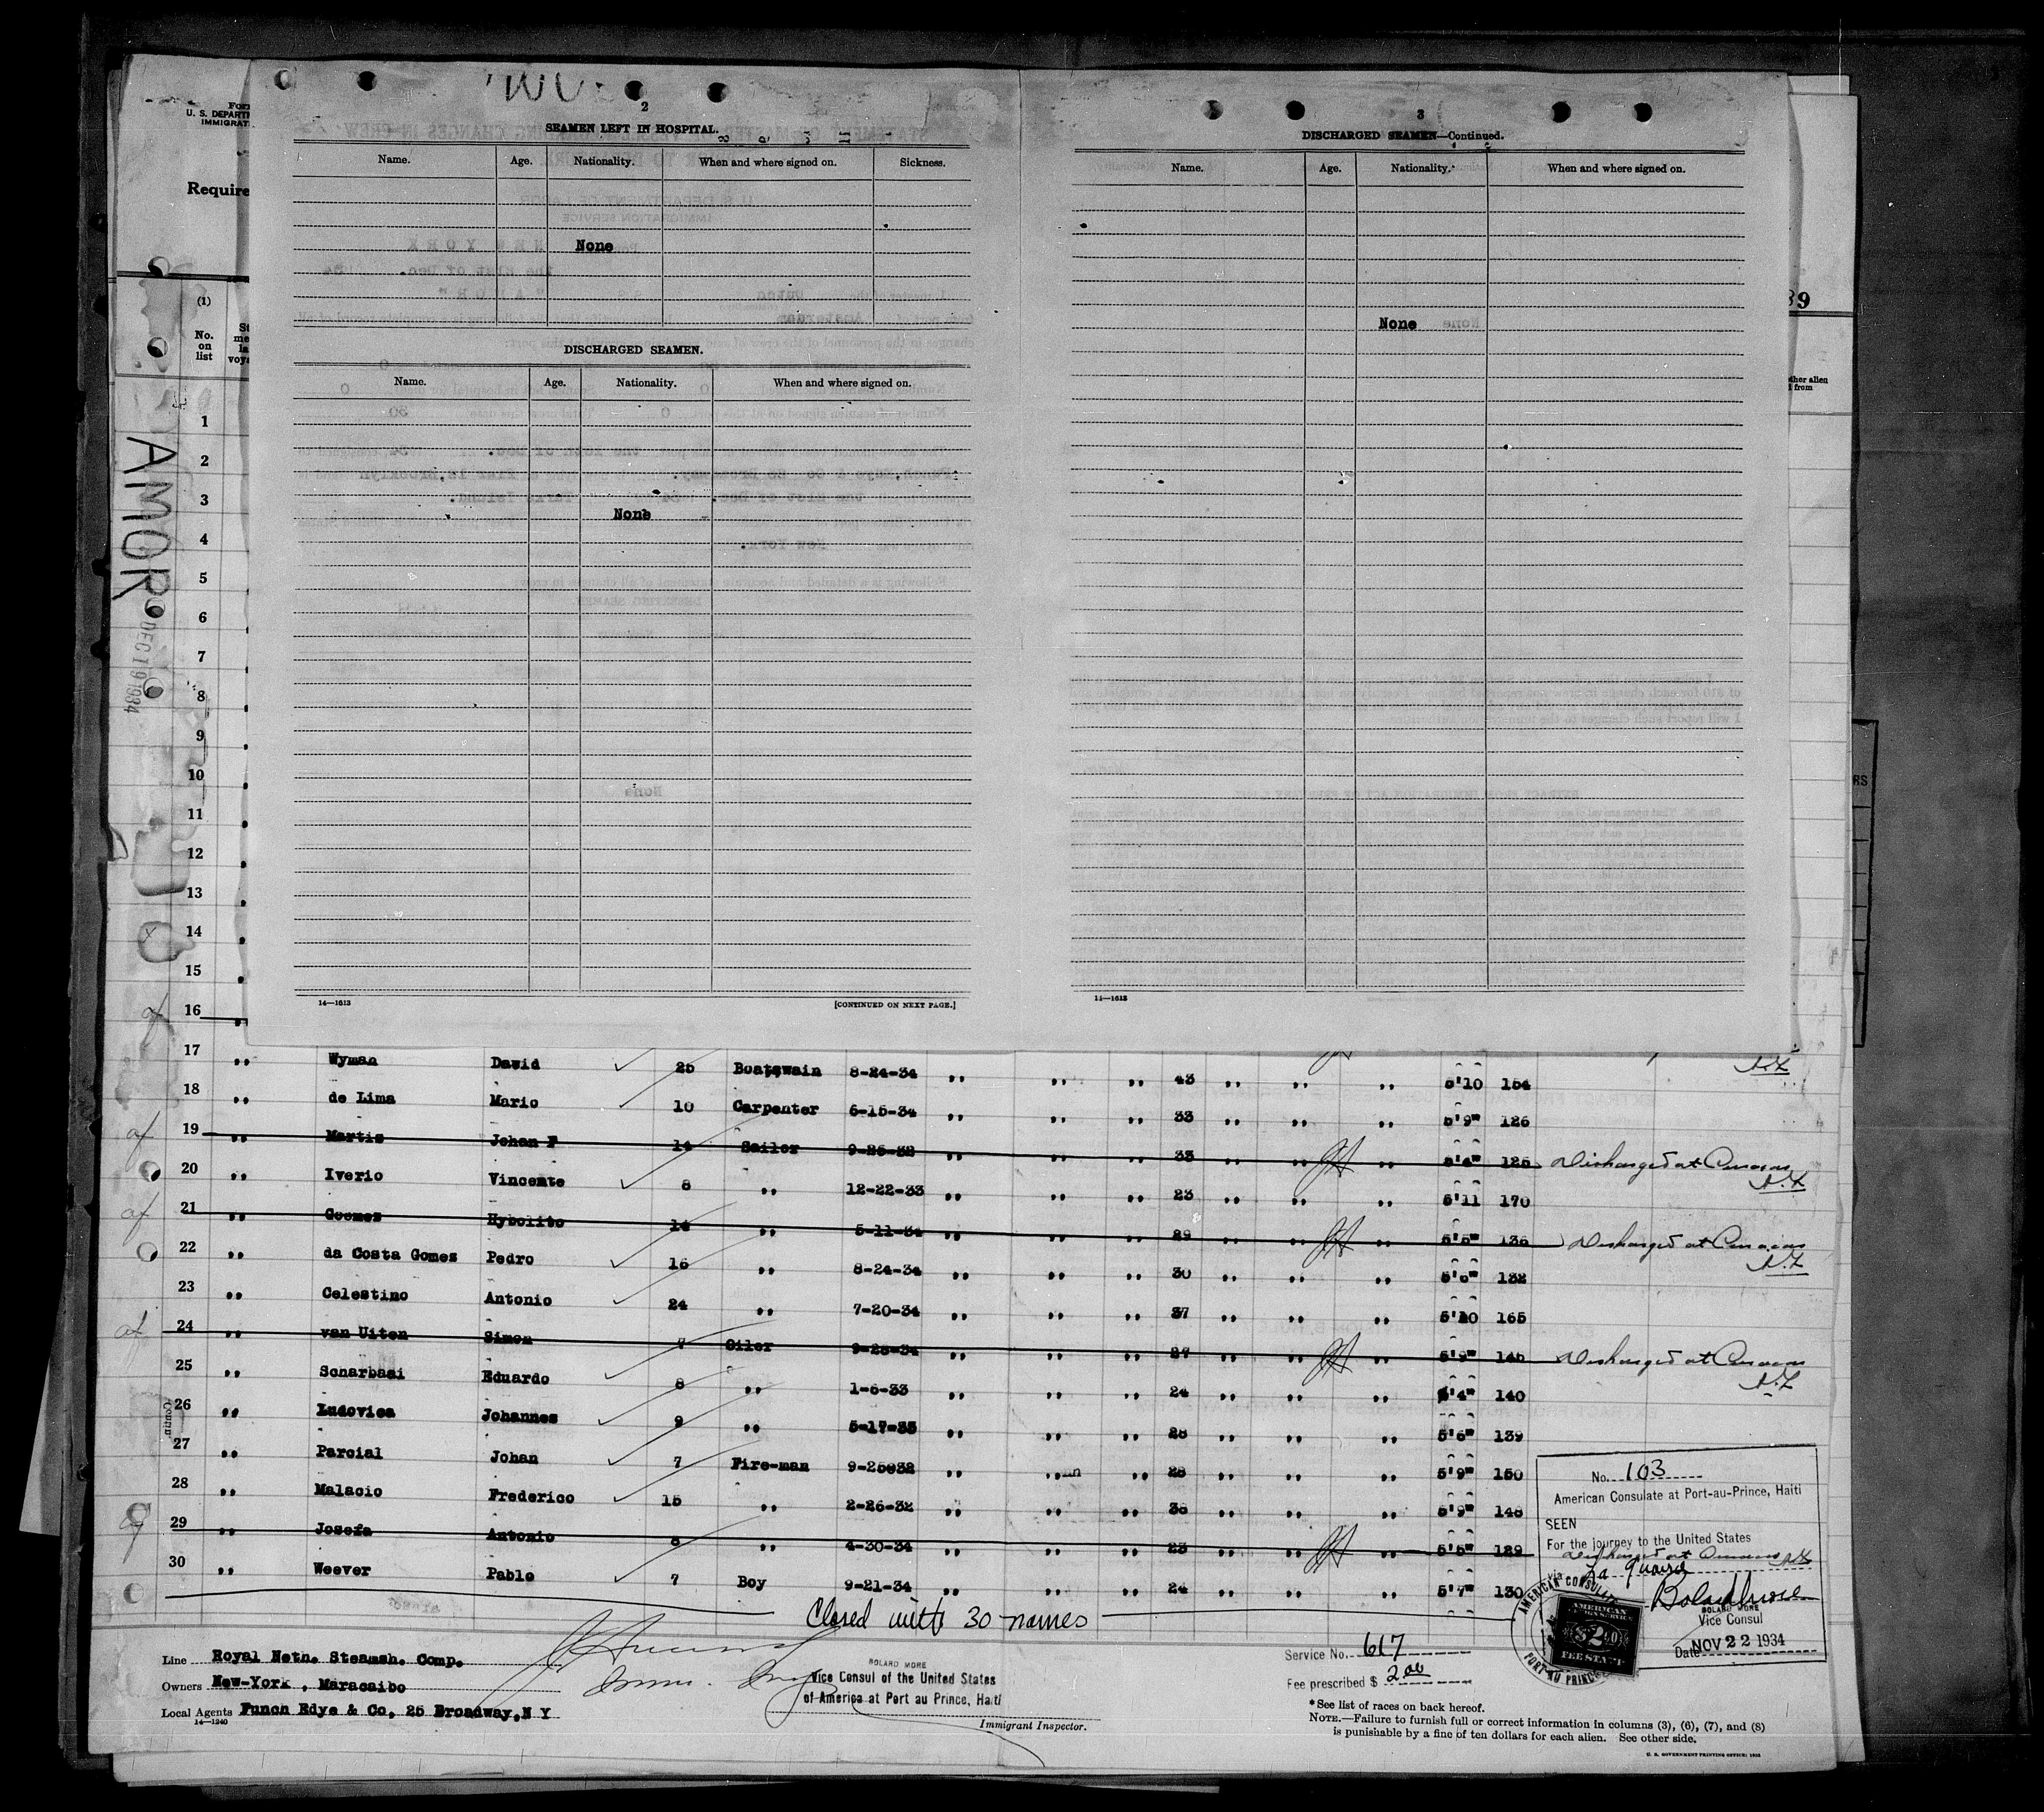 Form
U. S. DEPARTM
IMMIGRAT
Require
(1)
No.
on
list
AMOR
DEC 19 1934
2
SEAMEN LEFT IN HOSPITAL.
Name. Age. Nationality. When and where signed on. Sickness.
None
DISCHARGED SEAMEN.
Name. Age. Nationality. When and where signed on.
None
14—1613 [CONTINUED ON NEXT PAGE.]
3
DISCHARGED SEAMEN—Continued.
Name. Age. Nationality. When and where signed on.
None
14—1613
39
other alien
from
1
2
3
4
5
6
7
8
9
10
11
12
13
14
15
16
17 ,, Wyman David 25 Boatswain 8-24-34 ,, ,, ,, 43 ,, ,, ,, 5'10 154
18 ,, de Lima Mario 10 Carpenter 6-15-34 ,, ,, ,, 33 ,, ,, ,, 5'9" 126
19 ,, Martis Johan F 14 Sailor 9-25-32 ,, ,, ,, 33 ,, ,, ,, 5'4" 125 Discharged at Curacao
20 ,, Iverio Vincente 8 ,, 12-22-33 ,, ,, ,, 23 ,, ,, ,, 5'11 170
21 ,, Goemes Hybolito 14 ,, 5-11-34 ,, ,, ,, 29 ,, ,, ,, 5'5" 136 Discharged at Curacao
22 ,, da Costa Gomez Pedro 16 ,, 8-24-34 ,, ,, ,, 30 ,, ,, ,, 5'6" 132
23 ,, Celestino Antonio 24 ,, 7-20-34 ,, ,, ,, 37 ,, ,, ,, 5'10 165
24 ,, van Uiten Simon 7 Oiler 9-28-34 ,, ,, ,, 27 ,, ,, ,, 5'9" 145 Discharged at Curacao
25 ,, Scharbaai Eduardo 8 ,, 1-6-33 ,, ,, ,, 24 ,, ,, ,, 5'4" 140
26 ,, Ludovica Johannes 9 ,, 5-17-33 ,, ,, ,, 28 ,, ,, ,, 5'6" 139
27 ,, Parcial Johan 7 Fire-man 9-25-32 ,, ,, ,, 28 ,, ,, ,, 5'9" 150
28 ,, Malacio Frederico 15 ,, 2-26-32 ,, ,, ,, 38 ,, ,, ,, 5'9" 148
29 ,, Josefa Antonio 6 ,, 4-30-34 ,, ,, ,, 23 ,, ,, ,, 5'5" 129
30 ,, Weever Pablo 7 Boy 9-21-34 ,, ,, ,, 24 ,, ,, ,, 5'7" 130
Contin.
Closed with 30 names
No. 103
American Consulate at Port-au-Prince, Haiti
SEEN
For the journey to the United States
Discharged at Curacao
via La Guaira
ROLAND MORE
Vice Consul
Date NOV 22 1934
AMERICAN CONSULATE
PORT AU PRINCE
AMERICAN
FOREIGN SERVICE
$2.00
FEE STAMP
Line Royal Neth. Steamsh. Comp.
Owners New-York , Maracaibo
Local Agents Funch Edye & Co, 25 Broadway, N Y
14—1240
ROLAND MORE
Vice Consul of the United States
of America at Port au Prince, Haiti
Immigrant Inspector.
Service No. 617
Fee prescribed $ 2.00
*See list of races on back hereof.
NOTE.—Failure to furnish full or correct information in columns (3), (6), (7), and (8)
is punishable by a fine of ten dollars for each alien. See other side.
U. S. GOVERNMENT PRINTING OFFICE: